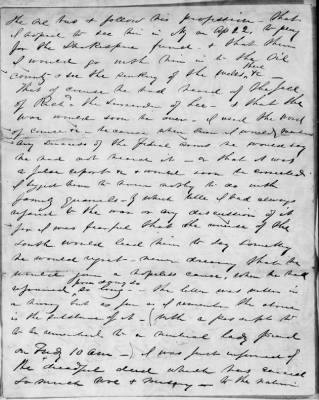 He at his & follow his profession — that
I hoped to see him in N.Y. on Ap 22. to play
for the Shakespeare fund — & that then
I would go with him in to the Oil
county & see the sinking of the wells &c
That of course he had heard of the fall
of Rich & the surrender of Lee & that the
war would soon be over — I used the word
of course — because when ever I would mention
any success of the federal arms he would say
he had not heard it — or that it was
a false report or would soon be corrected.
I begged him to have nothing to do with
family quarrels — I had always
refused to the war or any discussion of it
for I was fearful that the course of the
south would lead him to say something
he would regret — never dreaming that he
would join a hopeless cause, when he had
refrained from doing so — The letter was written in
a hurry but as far as I remember the above
is the substance of it — (with a postscript
to be remembered to a mutual lady friend
on Friday 10 am —) I was just informed of
the dreadful deed which has caused
so much woe & misery — to the nation